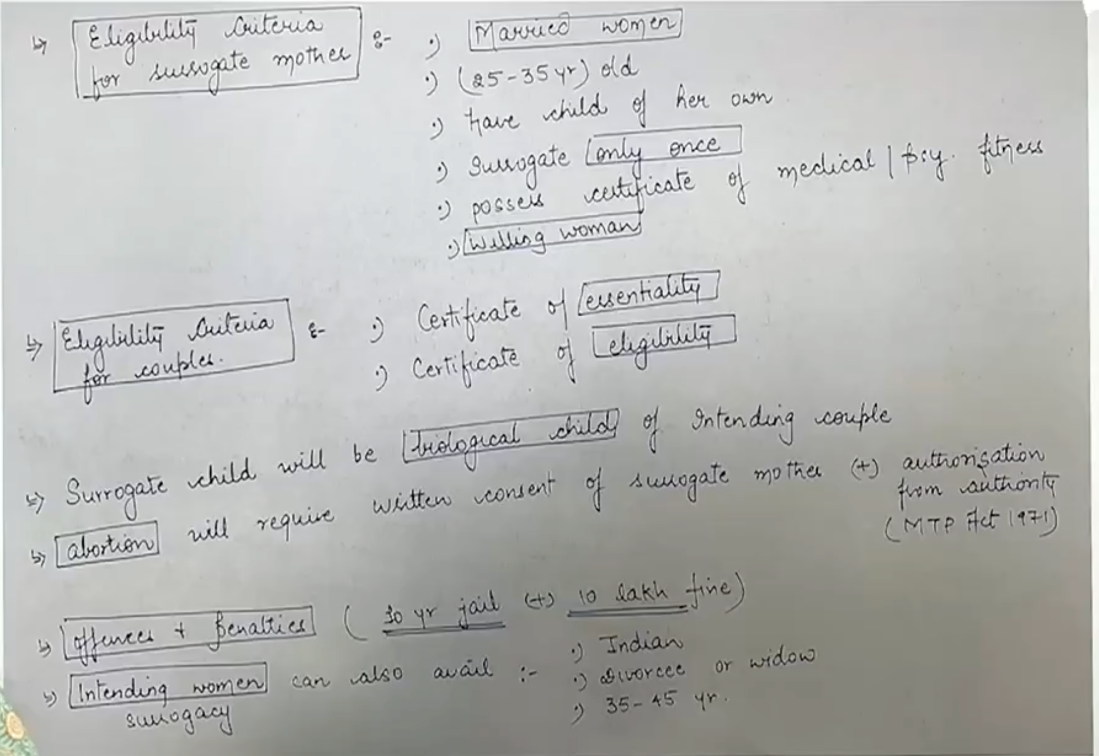 ↳ Eligibility Criteria for surrogate mother :- •) Married women
•) (25-35 yr) old
•) have child of her own
•) Surrogate only once
•) possess certificate of medical / psy. fitness
•) Willing woman
↳ Eligibility Criteria for couples. :- •) Certificate of essentiality
•) Certificate of eligibility
↳ Surrogate child will be biological child of Intending couple
↳ abortion will require written consent of surrogate mother (+) authorisation from authority
(MTP Act 1971)
↳ offences + Penalties ( 30 yr jail (+) 10 lakh fine)
↳ Intending women can also avail surrogacy :- •) Indian
•) Divorcee or widow
•) 35-45 yr.